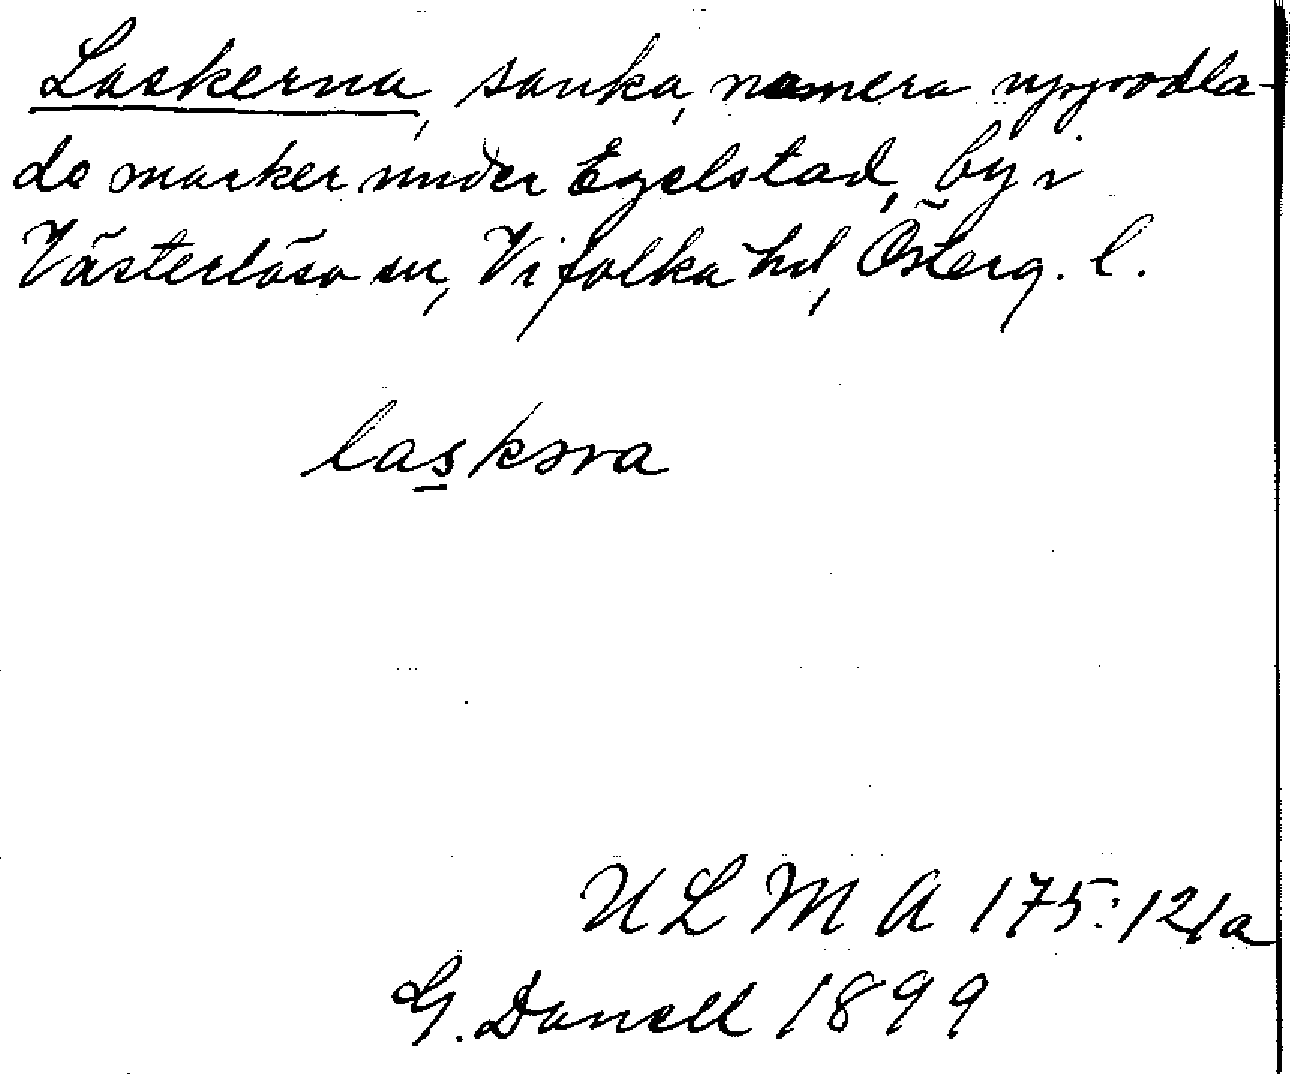 Laskerna, sanka, numera uppodla-
de marker under Egelstad, by i
Västerlösa sn, Vifolka hd, Österg. l.
laskəra
U L M A 175:121a
G. Danell 1899